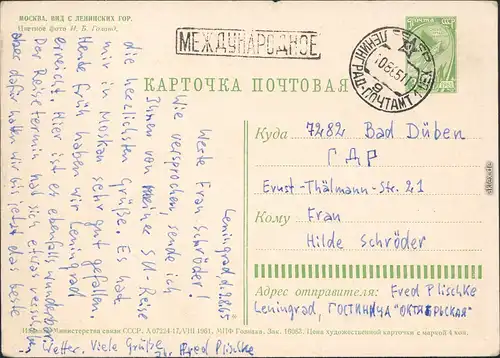 МОСКВА. ВИД С ЛЕНИНСКИХ ГОР.
Цветное фото И. Б. Голанд.
МЕЖДУНАРОДНОЕ
ПОЧТА СССР
ЛЕНИНГРАД-ПОЧТАМТ
КАРТОЧКА ПОЧТОВАЯ
Leningrad, d. 9.8.65
Werte Frau Schröder!
Wie versprochen, sende ich
Ihnen von meiner SU-Reise
die herzlichsten Grüße. Es hat
mir in Moskau sehr gut gefallen.
Heute früh haben wir Leningrad
erreicht. Hier ist es ebenfalls wunderbar.
Der Reisetermin hat sich etwas
aber dafür hatten wir bis jetzt das beste
Wetter. Viele Grüße
Ihr Fred Plischke
Куда 7282 Bad Düben
ГДР
Ernst-Thälmann-Str. 21
Кому Frau
Hilde Schröder
Адрес отправителя: Fred Plischke
Leningrad, ГОСТИНИЦА "ОКТЯБРЬСКАЯ"
Министерства связи СССР. А 07224-17/VIII 1961, МПФ Гознака. Зак. 10063. Цена художественной карточки с маркой 4 коп.